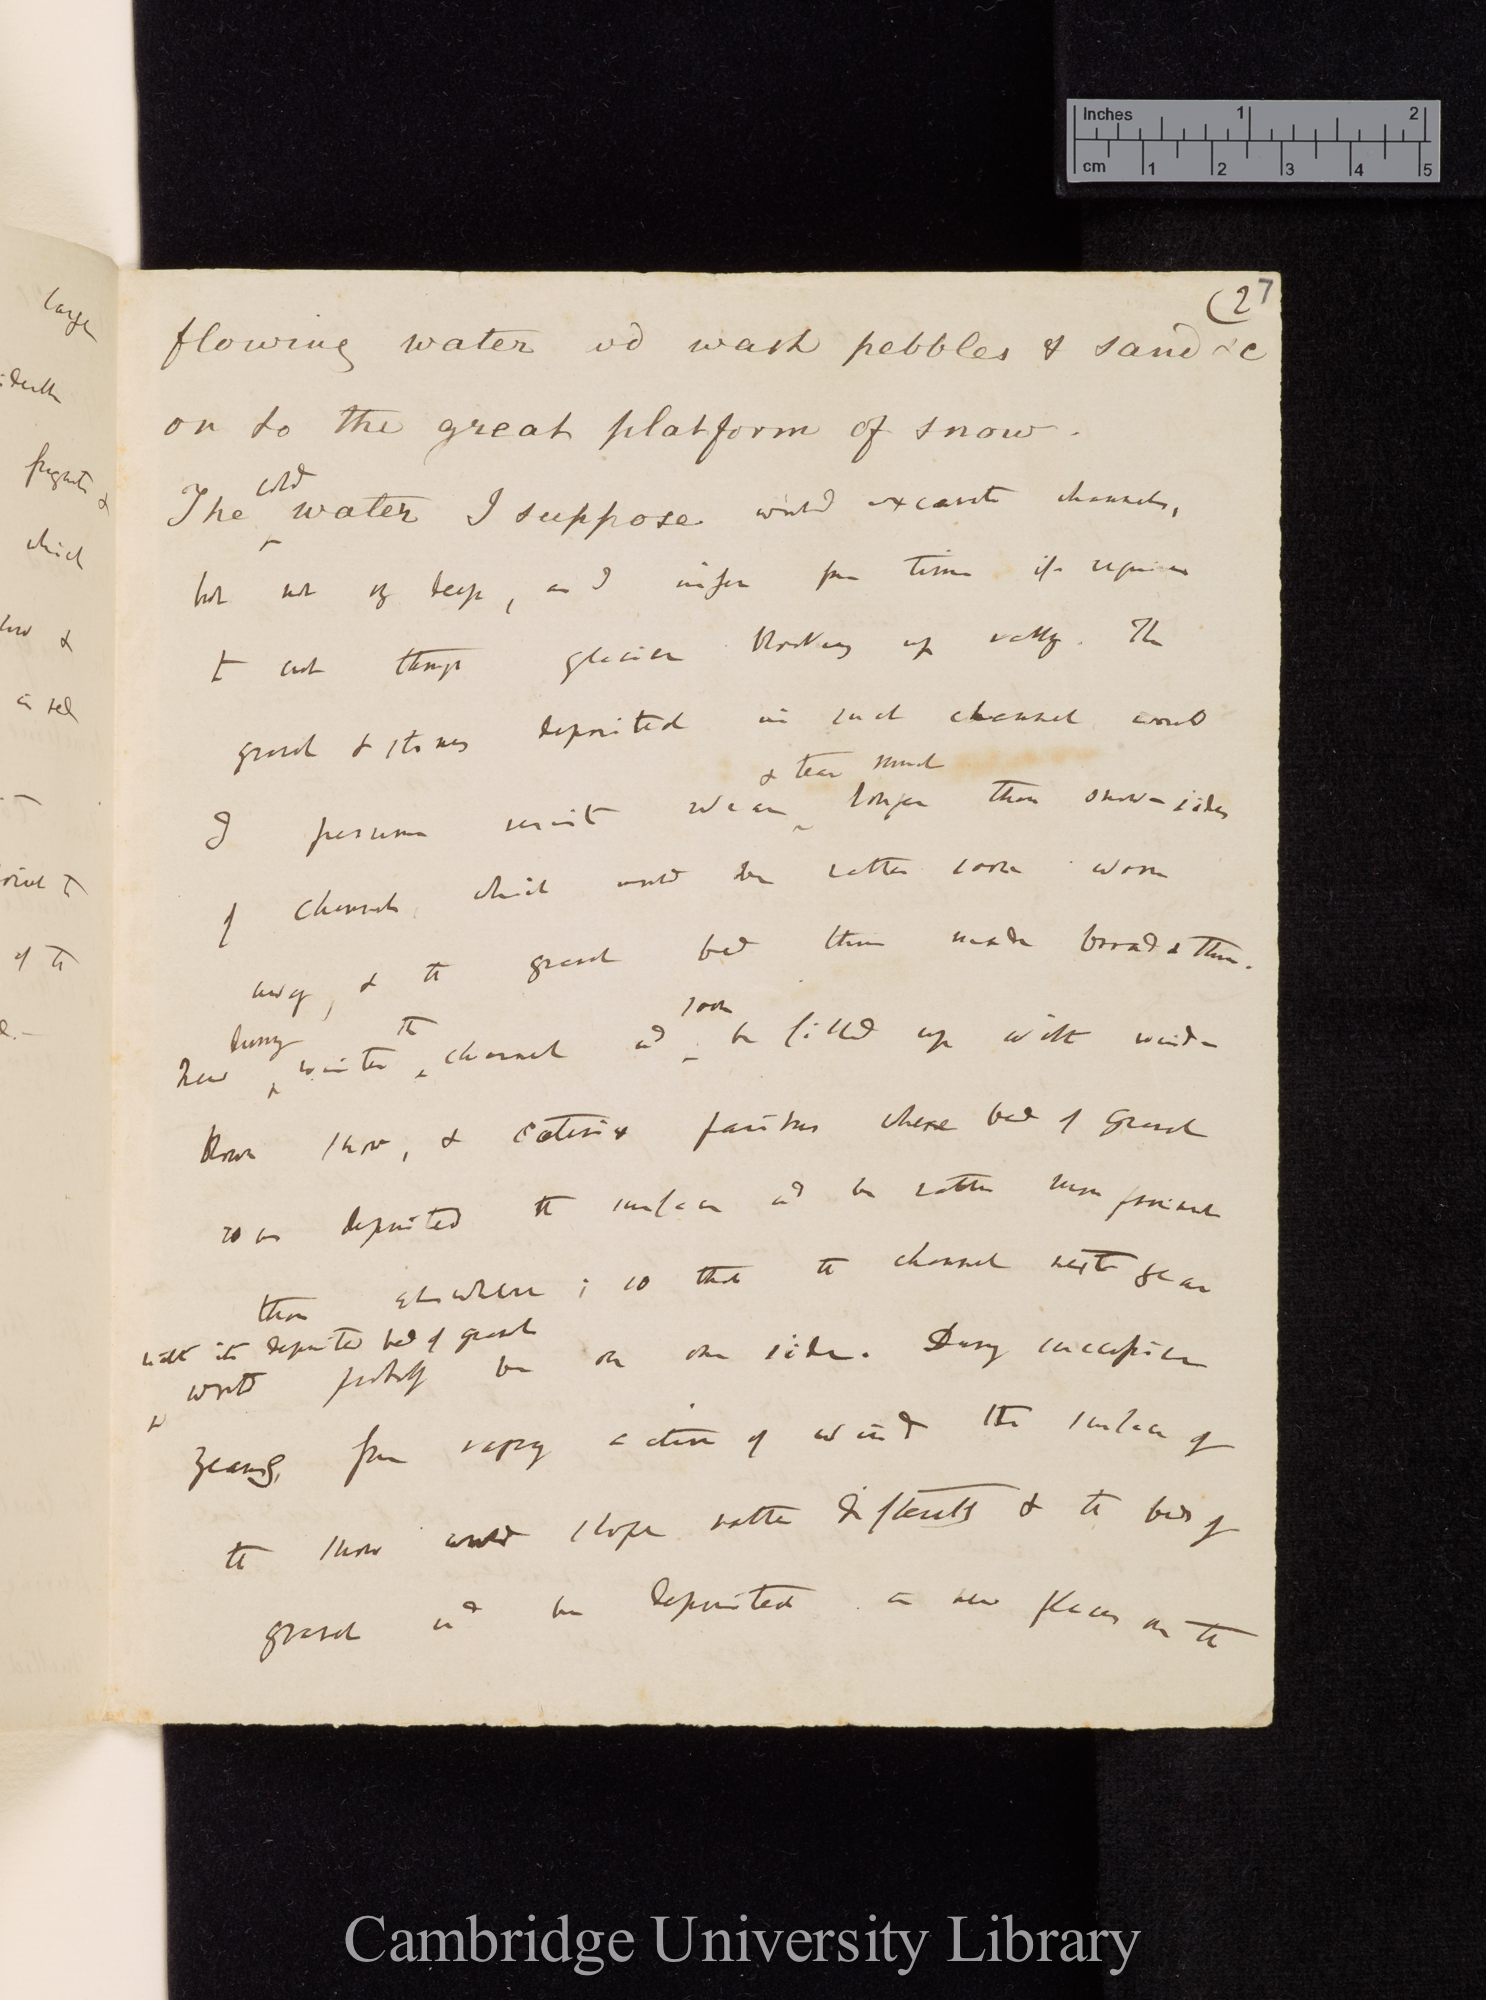 (2
7
flowing water wd wash pebbles & sand &c
on to the great platform of snow.
The cold water I suppose would excavate channels,
but not vy deep, as I infer from time it requires
to cut through glacier blocking up valley. The
gravel & stones deposited in such channel would
I presume resist wear & tear much longer than snow-sides
of channel which would be rather soon worn
away, & the gravel bed thus made broad & thin.
During winter the channel wd soon be filled up with wind-
blown snow, & where bed of gravel
was deposited the surface wd be rather more prominent
than elsewhere; so that the channel next year
with its deposited bed of gravel
would probably be on one side. During successive
years, from varying action of wind the surface of
the snow would slope rather differently & the beds of
gravel wd be deposited in new places on the
large
which
of the
Inches 1 2
cm 1 2 3 4 5
Cambridge University Library